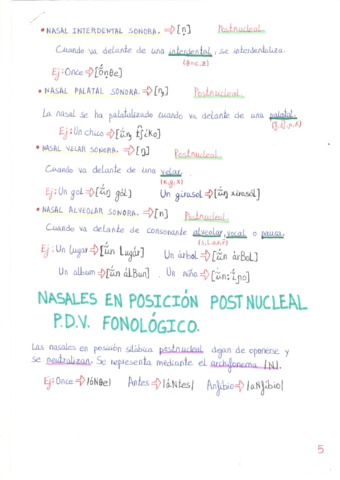 • NASAL INTERDENTAL SONORA. ⇒ [n̟] Postnucleal.
Cuando va delante de una interdental, se interdentaliza.
(θ=c,z)
Ej: Once ⇒ [ónθe]
• NASAL PALATAL SONORA. ⇒ [ņ] Postnucleal.
La nasal se ha palatalizado cuando va delante de una palatal.
Ej: Un chico ⇒
• NASAL VELAR SONORA. ⇒ [ŋ] Postnucleal
Cuando va delante de una velar.
(k,g,x)
Ej: Un gol ⇒ [úŋ gól] Un girasol ⇒ [úŋ xirasól]
• NASAL ALVEOLAR SONORA. ⇒ [n] Postnucleal.
Cuando va delante de consonante alveolar, vocal o pausa.
Ej: Un lugar ⇒ [ún lugár] Un árbol ⇒ [ún árBol]
Un album ⇒ [ún álBun] Un niño ⇒
NASALES EN POSICIÓN POSTNUCLEAL
P.D.V. FONOLÓGICO.
Las nasales en posición silábica postnucleal dejan de oponerse y
se neutralizan. Se representa mediante el archifonema |N|.
Ej: Once ⇒ |óNθe| Antes ⇒ |áNtes| Anfibio ⇒ |aNfíbio|
5